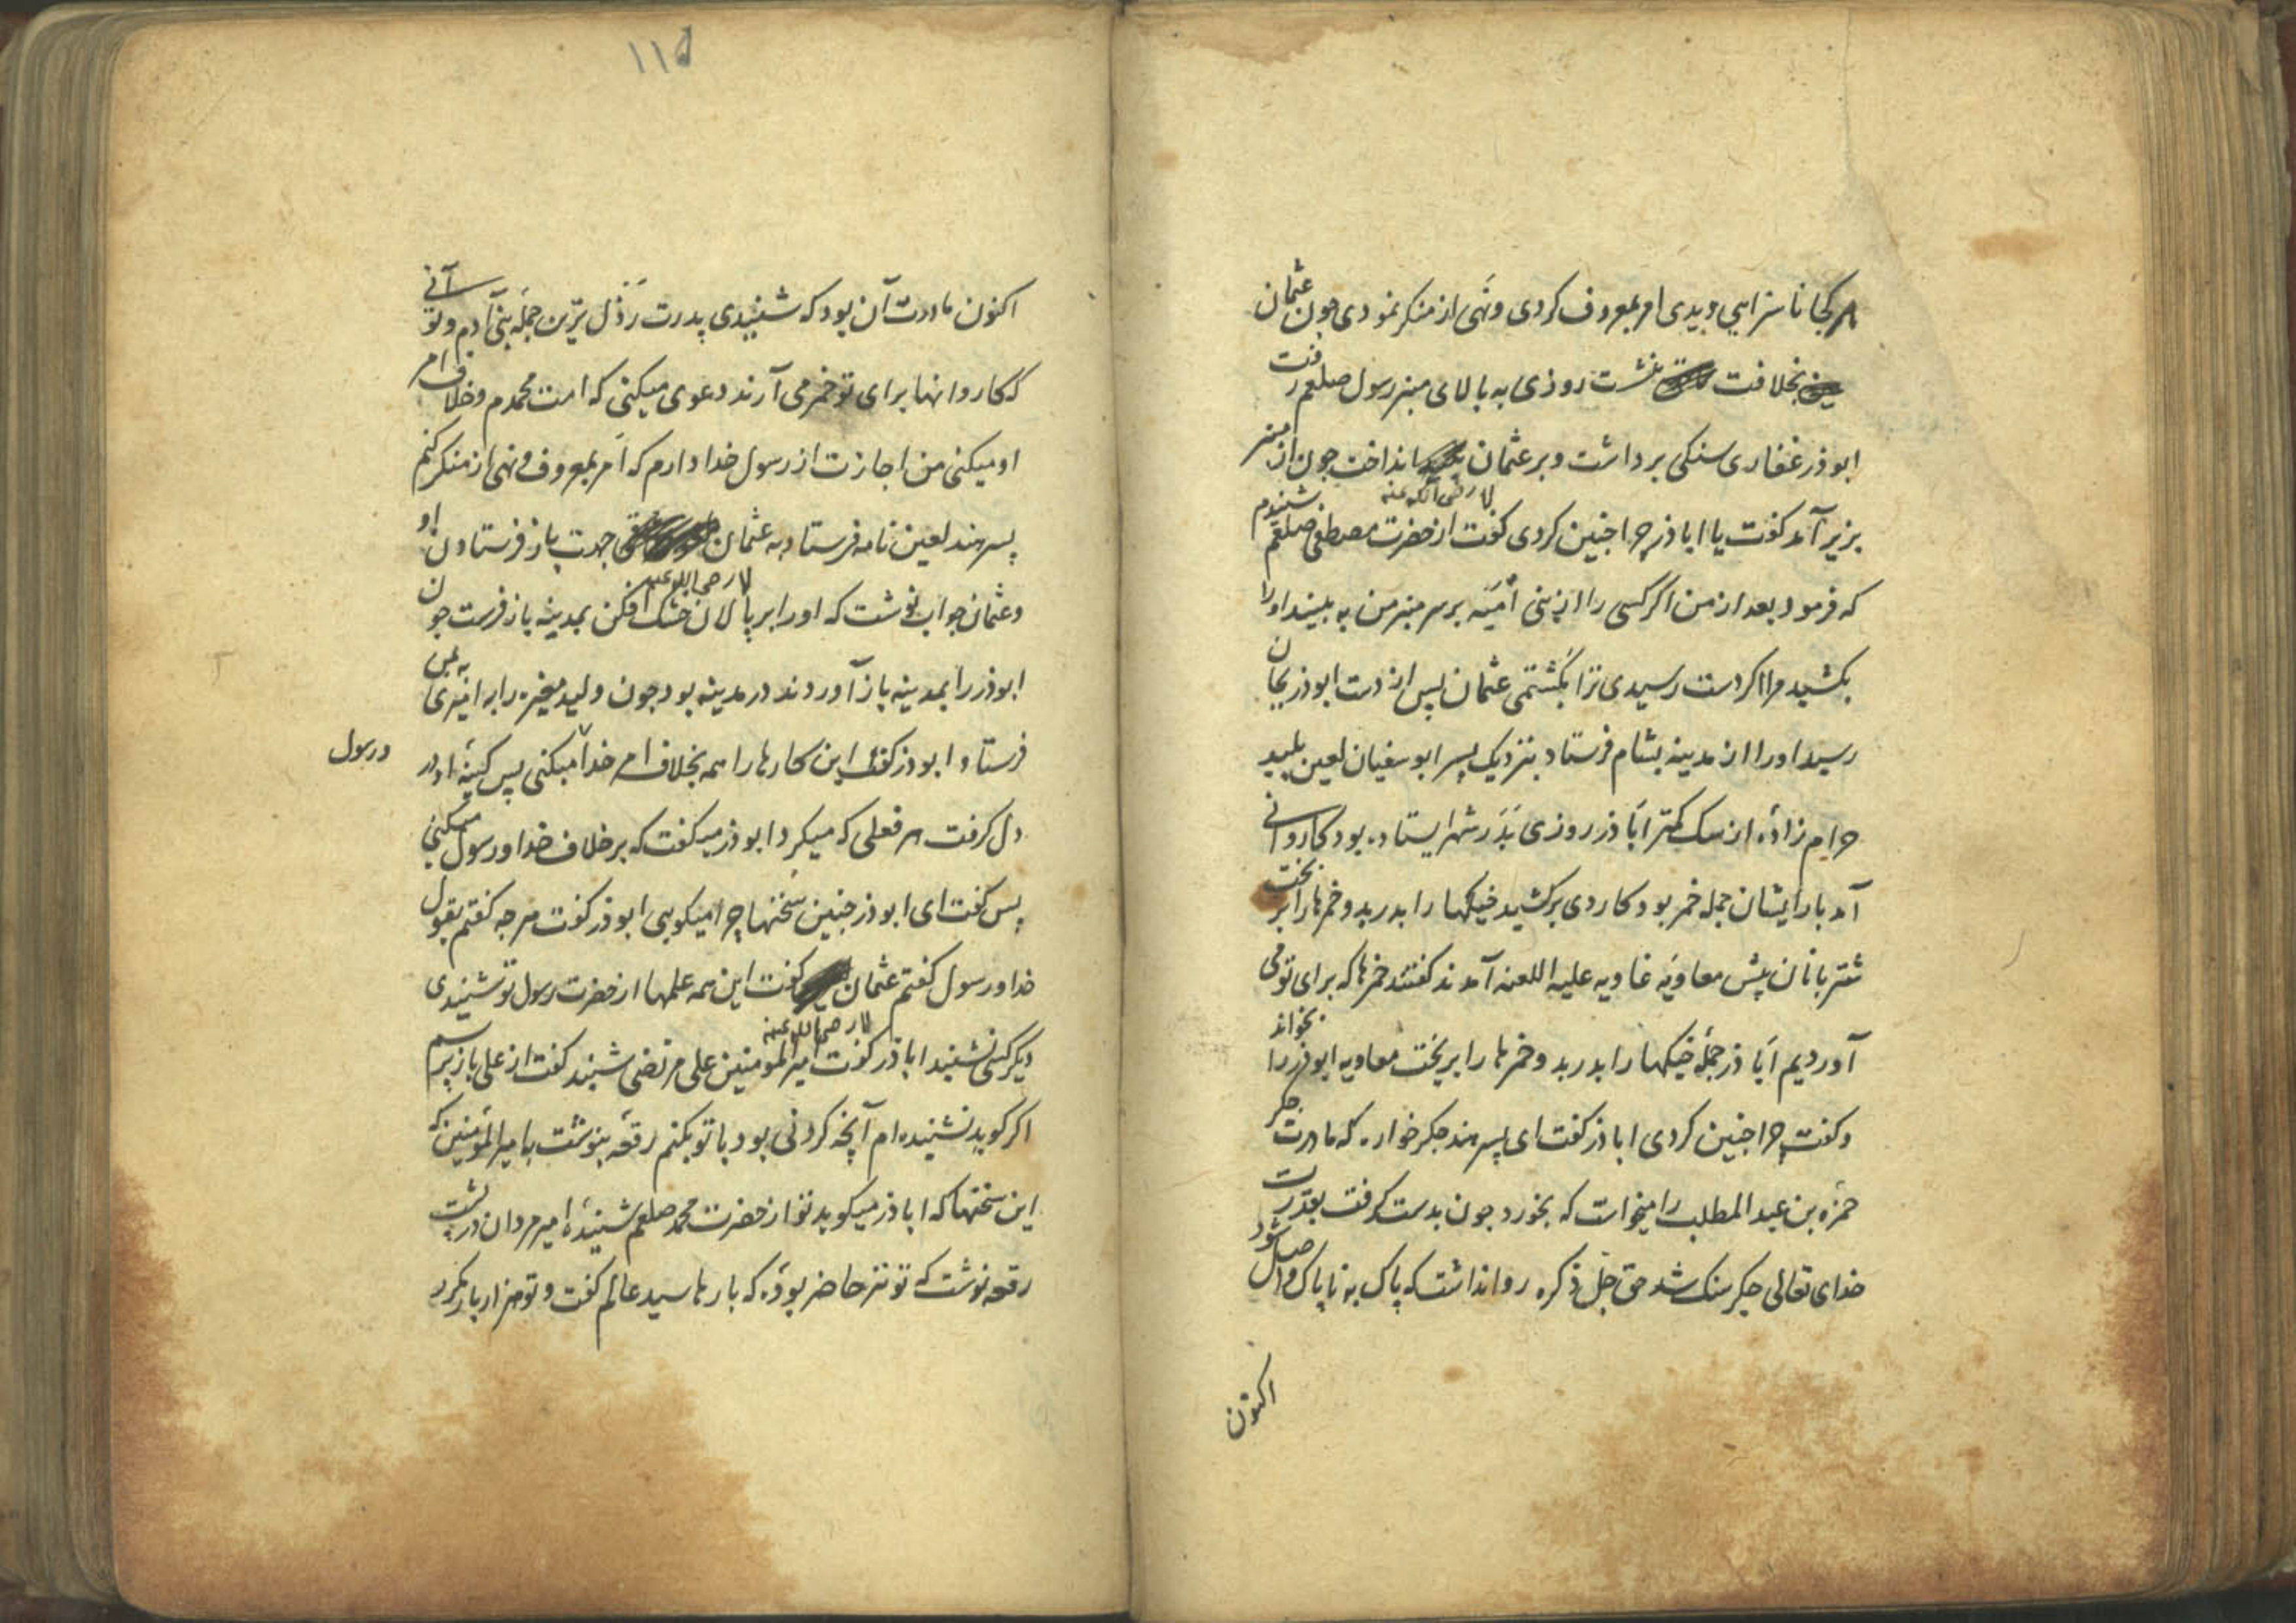 هر کجا ناسزایی دیدی امر بمعروف کردی و نهی از منکر نمودی چون عثمان
بخلافت بنشست روزی به بالای منبر رسول صلعم رفت
ابوذر غفاری سنکی برداشت و بر عثمان انداخت چون از منبر
لا رضی الله عنه
بزیر آمد کفت یا اباذر چرا چنین کردی کفت از حضرت مصطفی صلعم شنیدم
که فرمود بعد از من اکر کسی را از بنی اُمَیّه بر سر منبر من به بینید او را
بکشید مرا اکر دست رسیدی ترا بکشتمی عثمان پس از دست ابوذر بجان
رسید او را از مدینه بشام فرستاد بنزدیک پسر ابوسفیان لعین پلید
حرام زادهٔ از سک کمتر اَباذر روزی بَدَر شهر ایستاده بود کاروانی
آمد بار ایشان جمله خمر بود کاردی برکشید خیکها را بدرید و خمرها را بریخت
شتربانان پیش معاویَه غاویه علیه اللعنه آمدند کفتند خمرها که برای تو می
آوردیم اَباذر جملهٔ خیکها را بدرید و خمرها را بریخت معاویه ابوذر را بخواند
و کفت چرا چنین کردی اباذر کفت ای پسر هند جکرخواره که مادرت جکر
حمزه بن عبد المطلب را میخواست که بخورد چون بدست کرفت بقدرت
خدای تعالی جکر سنک شد حق جَلّ ذکره روا نداشت که پاک به ناپاک واصل شود
اکنون
۱۱۵
اکنون مادرت آن بود که شنیدی پدرت رَذَل ترین جمله بنی آدم و تو آنی
که کاروانها برای تو خمر می آرند دعوی میکنی که امت محمدم و خلاف امر
او میکنی من اجازت از رسول خدا دارم که اَمر بمعروف و نهی از منکر کنم
پسر هند لعین نامه فرستاد به عثمان جهت باز فرستادن او
لا رضی الله عنه
و عثمان جواب نوشت که او را بر پالان خشک افکن بمدینه باز فرست چون
ابوذر را بمدینه باز آوردند در مدینه بود چون ولید مغیره را به امیری به یمن
فرستاد ابوذر کفت این کارها را همه بخلاف امر خدا میکنی پس کینهٔ او در
و رسول
دل کرفت هر فعلی که میکرد ابوذر میکفت که بر خلاف خدا و رسول میکنی
پس کفت ای ابوذر چنین سخنها چرا میکویی ابوذر کفت هر چه کفتم بقول
خدا و رسول کفتم عثمان کفت این همه علمها از حضرت رسول تو شنیدی
لا رضی الله عنه
دیکر کسی نشنید اباذر کفت امیر المومنین علی مرتضی شنید کفت از علی باز پرسم
اکر کوید نشنیده ام آنچه کردنی بود با تو بکنم رقعه بنوشت با میر المؤمنین که
این سخنها که اباذر میکوید تو از حضرت محمد صلعم شنیدهٔ امیر مردان در پشت
رقعه نوشت که تو نیز حاضر بودهٔ که بارها سید عالم کفت و تو هزار بار